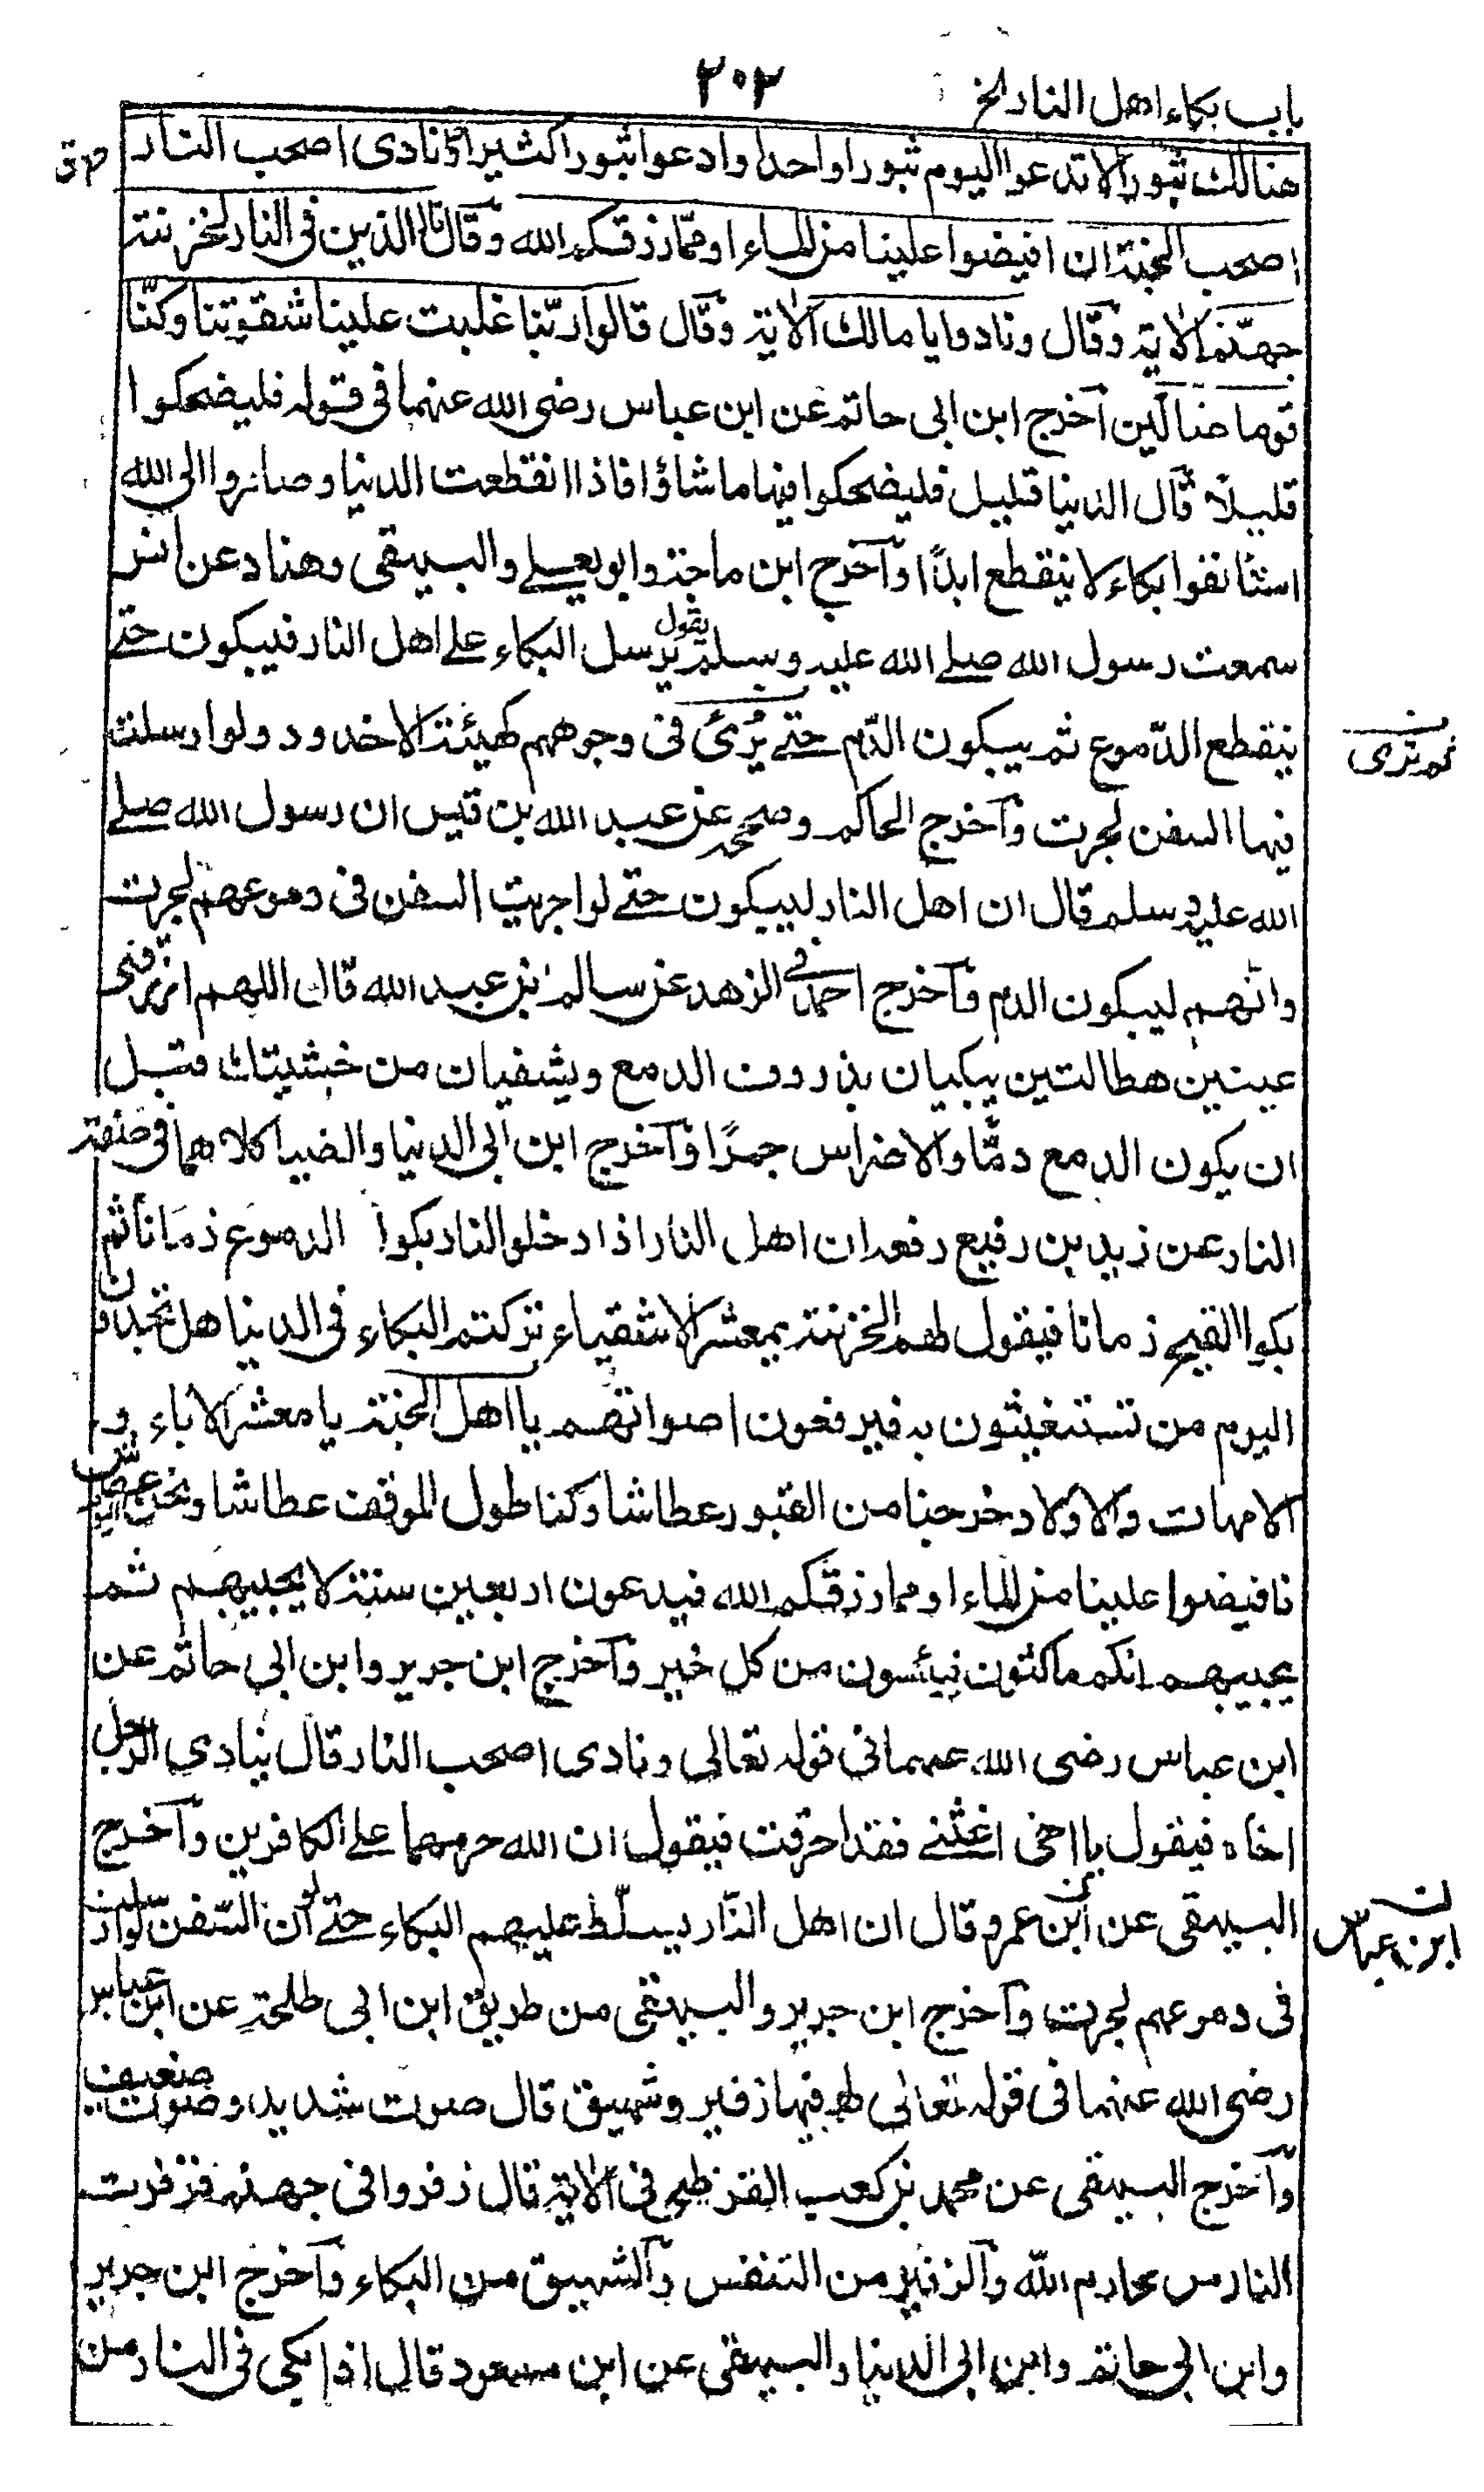 باب بكاء اهل النار الخ
٢٠٢
هنالك ثبورا لا تدعوا اليوم ثبورا واحدا وادعوا ثبورا كثيرا ونادى اصحب النار
اصحب الجنة ان افيضوا علينا من الماء او مما رزقكم الله وقال الذين فى النار لخزنة
جهنم الاية وقال ونادوا يا مالك الاية وقال قالوا ربنا غلبت علينا شقوتنا وكنا
قوما ضالين اخرج ابن ابى حاتم عن ابن عباس رضى الله عنهما فى قوله فليضحكوا
قليلا قال الدنيا قليل فليضحكوا فيها ما شاؤا فاذا انقطعت الدنيا وصاروا الى الله
استأنفوا بكاء لا ينقطع ابدا واخرج ابن ماجة وابو يعلے والبيهقى وهناد عن انس
سمعت رسول الله صلے الله عليه وسلم يقول يرسل البكاء علے اهل النار فيبكون حتے
ينقطع الدموع ثم يبكون الدم حتے يُرىٰ فى وجوههم كهيئة الاخدود ولو ارسلت
ثم ترى
فيها السفن لجرت واخرج الحاكم وصححه عن عبد الله بن قيس ان رسول الله صلے
الله عليه وسلم قال ان اهل النار ليبكون حتے لو اجريت السفن فى دموعهم لجرت
وانهم ليبكون الدم واخرج احمد فى الزهد عن سالم بن عبد الله قال اللهم ارزقنى
عينين هطالتين يبكيان بذروف الدمع ويشفيان من خشيتك قبل
ان يكون الدمع دمًا والاضراس جمرًا واخرج ابن ابى الدنيا والضيا كلاهما فى صفة
النار عن زيد بن رفيع رفعه ان اهل النار اذا دخلو النار بكوا الدموع زمانا ثم
بكوا القيح زمانا فيقول لهم الخزنة يمعشر الاشقياء تركتم البكاء فى الدنيا هل تجدون
اليوم من تستغيثون به فيرفعون اصواتهم يا اهل الجنة يا معشر الاباء و
الامهات والاولاد خرجنا من القبور عطاشا وكنا طول الموقف عطاشا ونحن عطاش
نافيضوا علينا من الماء او مما رزقكم الله فيدعون اربعين سنة لا يجيبهم ثم
يجيبهم انكم ماكثون فيئسون من كل خير واخرج ابن جرير وابن ابي حاتم عن
ابن عباس رضى الله عنهما فى قوله تعالى ونادى اصحب النار قال ينادى الرجل
اخاه فيقول يا اخى اغثنے فقد احرقت فيقول ان الله حرمهما علے الكافرين واخرج
البيهقى عن ابن عمرو قال ان اهل النار يسلط عليهم البكاء حتے لو ان السفن
ابن عباس
فى دموعهم لجرت واخرج ابن جرير والبيهقى من طريق ابن ابى طلحة عن ابن عباس
رضى الله عنهما فى قوله تعالى لهم فيها زفير وشهيق قال صوت شديد وصوت ضعيف
واخرج البيهقى عن محمد بن كعب القرظے فى الاية قال زفروا فى جهنم فزفرت
النار من محارم الله والزفير من التنفس والشهيق من البكاء واخرج ابن جرير
وابن ابى حاتم وابن ابى الدنيا والبيهقى عن ابن مسعود قال اذا بكى فى النار من